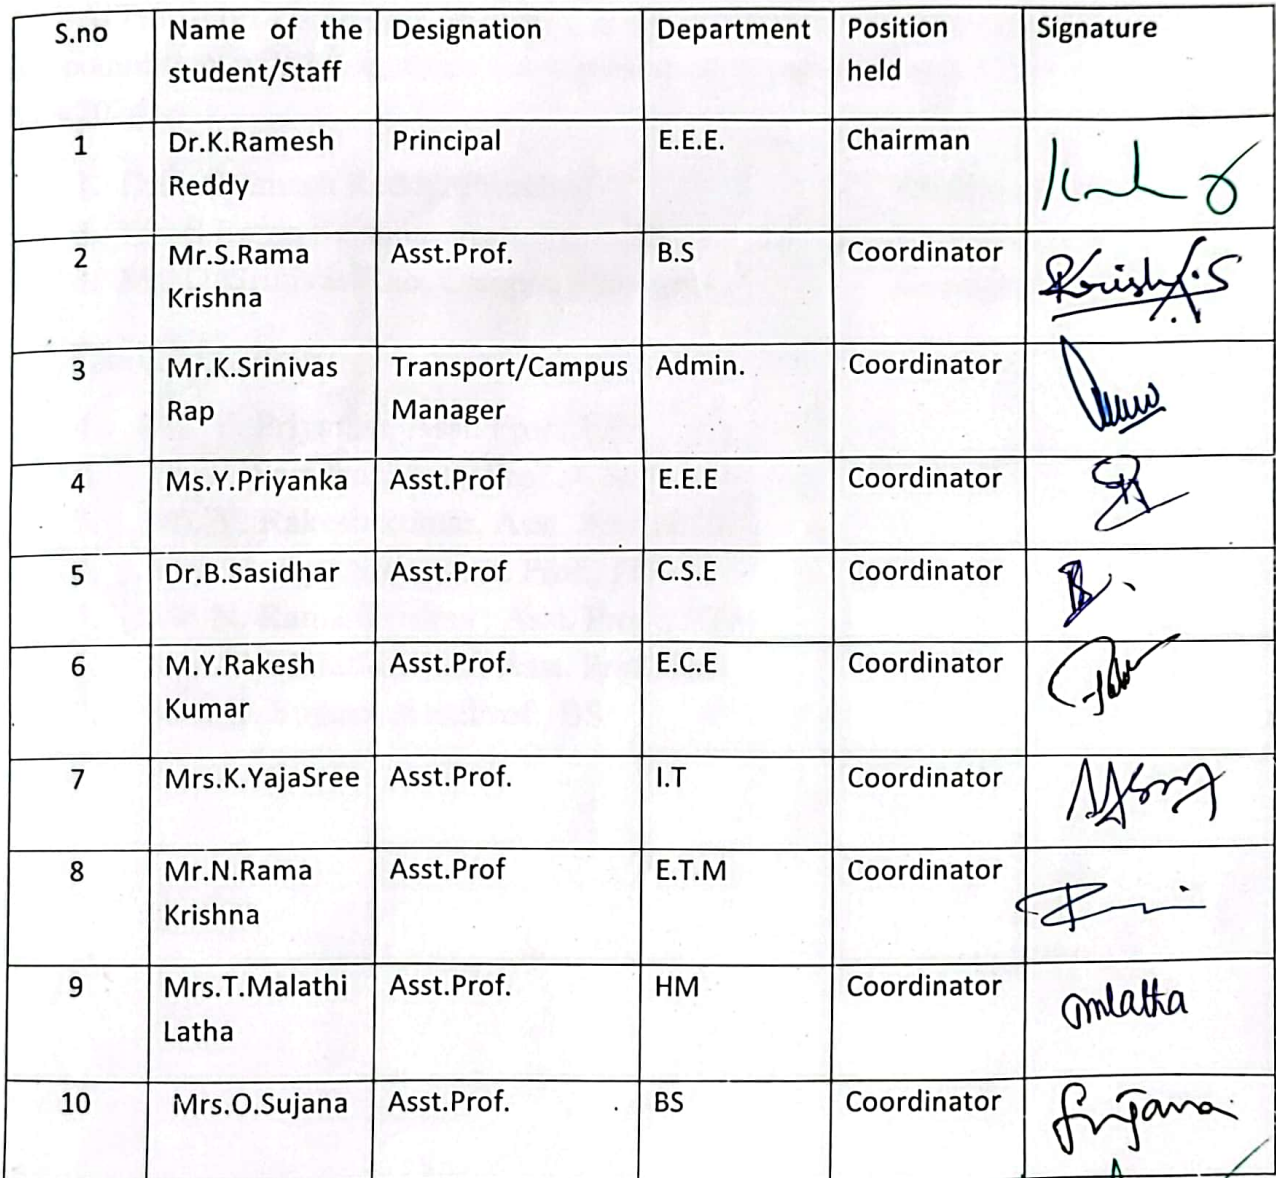 S.no Name of the student/Staff Designation Department Position held Signature
1 Dr.K.Ramesh Reddy Principal E.E.E. Chairman
2 Mr.S.Rama Krishna Asst.Prof. B.S Coordinator Krishna.S
3 Mr.K.Srinivas Rap Transport/Campus Manager Admin. Coordinator
4 Ms.Y.Priyanka Asst.Prof E.E.E Coordinator
5 Dr.B.Sasidhar Asst.Prof C.S.E Coordinator
6 M.Y.Rakesh Kumar Asst.Prof. E.C.E Coordinator
7 Mrs.K.YajaSree Asst.Prof. I.T Coordinator
8 Mr.N.Rama Krishna Asst.Prof E.T.M Coordinator
9 Mrs.T.Malathi Latha Asst.Prof. HM Coordinator mlatha
10 Mrs.O.Sujana Asst.Prof. BS Coordinator Sujana